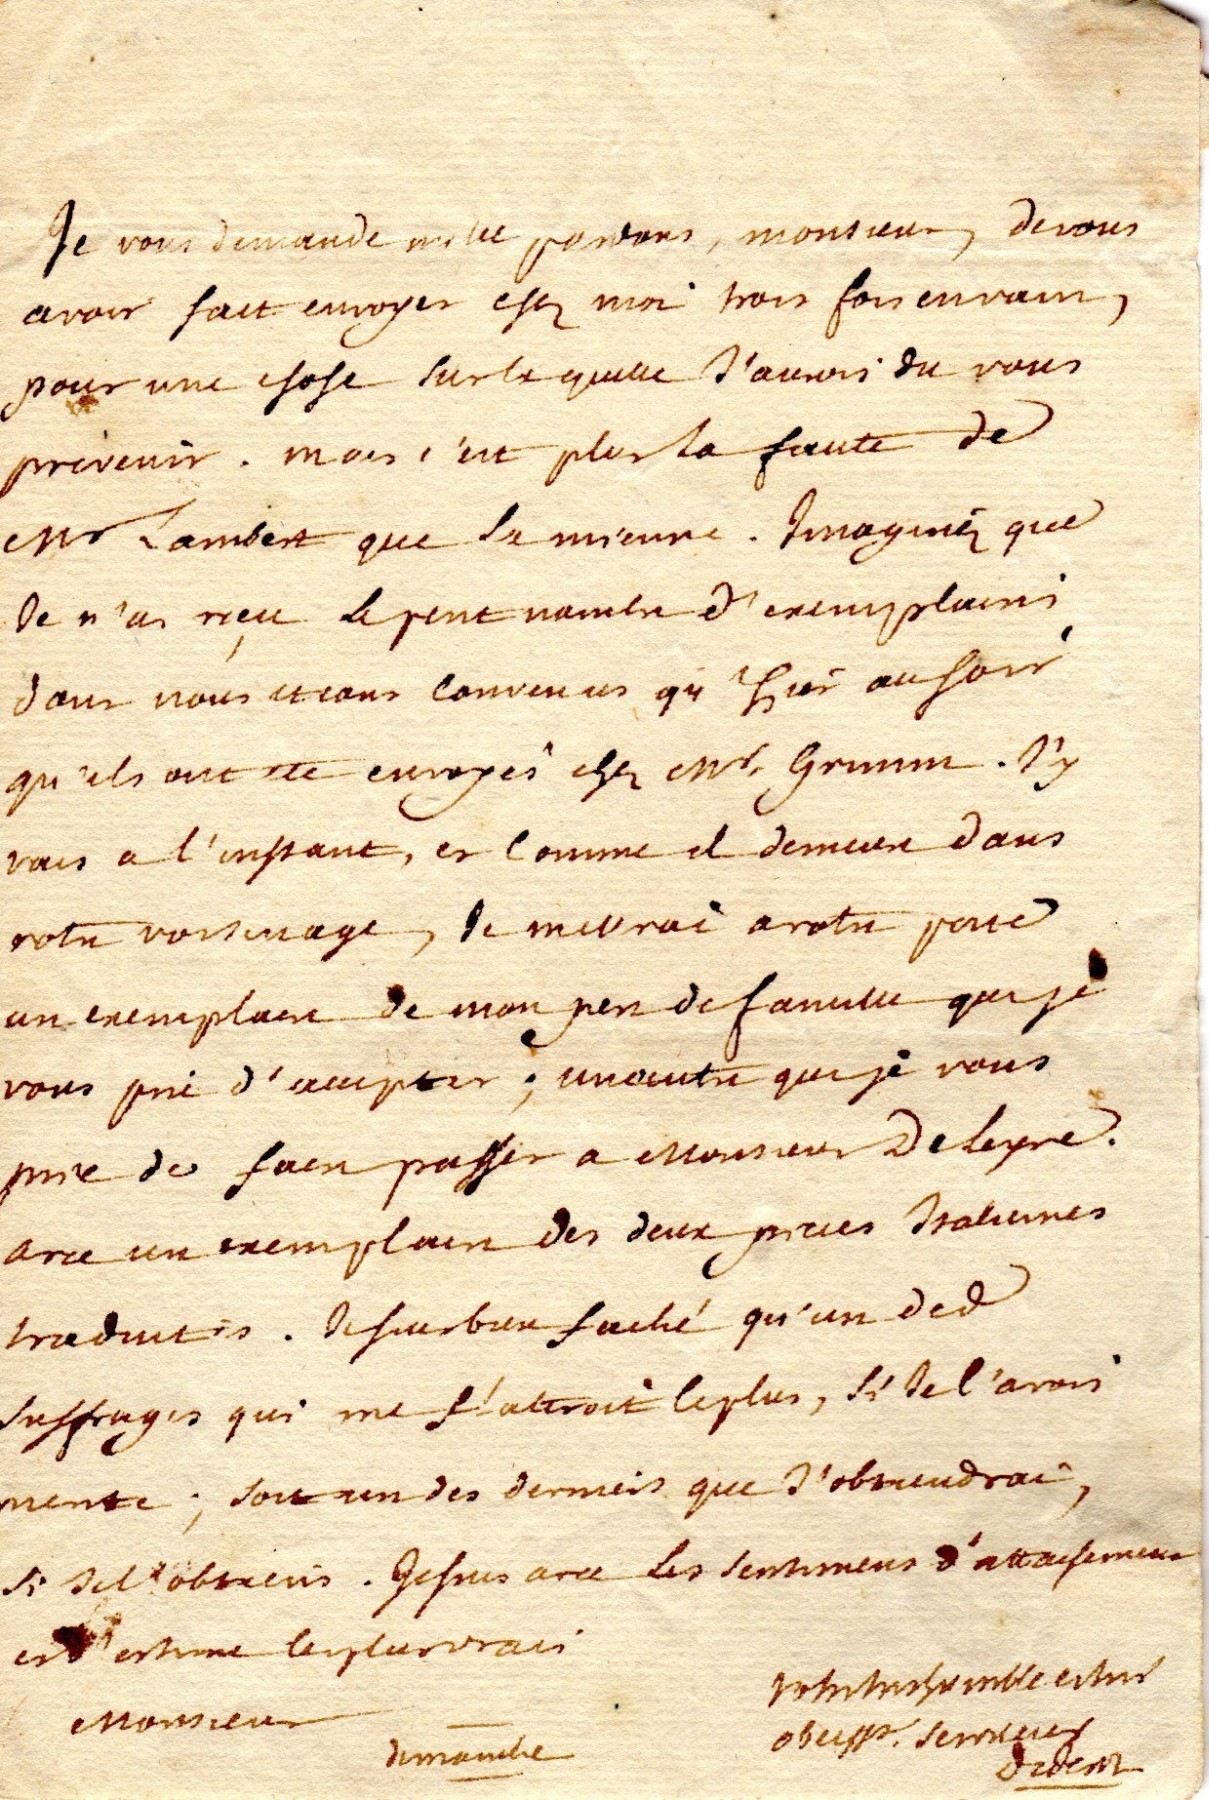 Je vous demande mille pardons, monsieur, de vous
avoir fait envoyer chez moi trois fois en vain,
pour une chose sur laquelle J'aurois du vous
prevenir. mais c'est plus la faute de
Mr Lambert que la mienne. Imaginéz que
Je n'ai reçu le petit nombre d'exemplaires
dont nous etions convenus qu'hier au soir
qu'ils ont ete envoyés chez Mr. Grimm. J'y
vais a l'instant, et comme il demeure dans
votre voisinage, Je mettrai a votre porte
un exemplaire de mon pere de famille que je
vous prie d'accepter; un autre que je vous
prie de faire passer a Monsieur Deleyre.
avec un exemplaire des deux pieces Italiennes
traduites. Je suis bien faché qu'un des
suffrages qui me flatteroit le plus, si Je l'avois
merite; soit un des derniers que J'obtiendrai,
si Je l'obtiens. Je suis avec les sentimens d'attachement
et d'estime les plus vrais
Monsieur
votre tres humble et tres
obeisst. serviteur
Diderot
dimanche